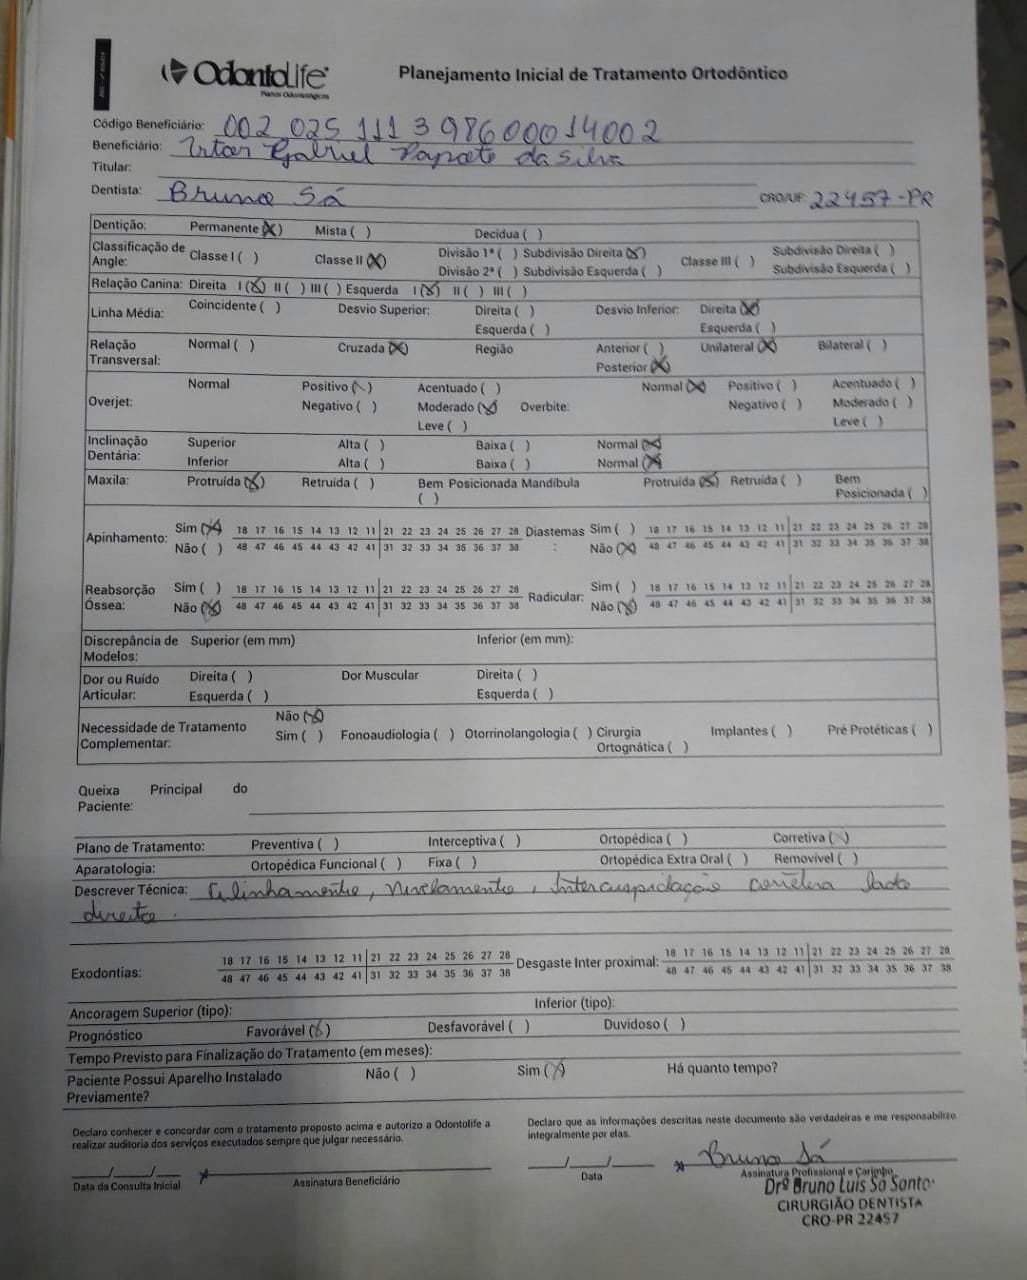 OdontoLife
Planos Odontológicos
Planejamento Inicial de Tratamento Ortodôntico
Código Beneficiário: 002 025 111 3 98600014002
Beneficiário: Gabriel da Silva
Titular:
Dentista: Bruno Sá CRO/UF: 22457-PR
Dentição: Permanente (X) Mista ( ) Decídua ( )
Classificação de Angle: Classe I ( ) Classe II (X) Divisão 1ª ( ) Subdivisão Direita (X) Classe III ( ) Subdivisão Direita ( )
Divisão 2ª ( ) Subdivisão Esquerda ( ) Subdivisão Esquerda ( )
Relação Canina: Direita I (X) II ( ) III ( ) Esquerda I (X) II ( ) III ( )
Linha Média: Coincidente ( ) Desvio Superior: Direita ( ) Desvio Inferior: Direita (X)
Esquerda ( ) Esquerda ( )
Relação Transversal: Normal ( ) Cruzada (X) Região Anterior ( ) Unilateral (X) Bilateral ( )
Posterior (X)
Overjet: Normal Positivo (X) Acentuado ( ) Overbite: Normal (X) Positivo ( ) Acentuado ( )
Negativo ( ) Moderado (X) Negativo ( ) Moderado ( )
Leve ( ) Leve ( )
Inclinação Dentária: Superior Alta ( ) Baixa ( ) Normal (X)
Inferior Alta ( ) Baixa ( ) Normal (X)
Maxila: Protruída (X) Retruída ( ) Bem Posicionada ( ) Mandíbula Protruída (X) Retruída ( ) Bem Posicionada ( )
Apinhamento: Sim (X) 18 17 16 15 14 13 12 11 21 22 23 24 25 26 27 28 Diastemas: Sim ( ) 18 17 16 15 14 13 12 11 21 22 23 24 25 26 27 28
Não ( ) 48 47 46 45 44 43 42 41 31 32 33 34 35 36 37 38 Não (X) 48 47 46 45 44 43 42 41 31 32 33 34 35 36 37 38
Reabsorção Óssea: Sim ( ) 18 17 16 15 14 13 12 11 21 22 23 24 25 26 27 28 Radicular: Sim ( ) 18 17 16 15 14 13 12 11 21 22 23 24 25 26 27 28
Não (X) 48 47 46 45 44 43 42 41 31 32 33 34 35 36 37 38 Não (X) 48 47 46 45 44 43 42 41 31 32 33 34 35 36 37 38
Discrepância de Modelos: Superior (em mm) Inferior (em mm):
Dor ou Ruído Articular: Direita ( ) Dor Muscular Direita ( )
Esquerda ( ) Esquerda ( )
Necessidade de Tratamento Complementar: Não (X)
Sim ( ) Fonoaudiologia ( ) Otorrinolangologia ( ) Cirurgia Ortognática ( ) Implantes ( ) Pré Protéticas ( )
Queixa Principal do Paciente:
Plano de Tratamento: Preventiva ( ) Interceptiva ( ) Ortopédica ( ) Corretiva (X)
Aparatologia: Ortopédica Funcional ( ) Fixa ( ) Ortopédica Extra Oral ( ) Removível ( )
Descrever Técnica: Alinhamento, Nivelamento, Intercuspidação lado
direito.
Exodontias: 18 17 16 15 14 13 12 11 21 22 23 24 25 26 27 28 Desgaste Inter proximal: 18 17 16 15 14 13 12 11 21 22 23 24 25 26 27 28
48 47 46 45 44 43 42 41 31 32 33 34 35 36 37 38 48 47 46 45 44 43 42 41 31 32 33 34 35 36 37 38
Ancoragem Superior (tipo): Inferior (tipo):
Prognóstico Favorável (X) Desfavorável ( ) Duvidoso ( )
Tempo Previsto para Finalização do Tratamento (em meses):
Paciente Possui Aparelho Instalado Previamente? Não ( ) Sim (X) Há quanto tempo?
Declaro conhecer e concordar com o tratamento proposto acima e autorizo a Odontolife a
realizar auditoria dos serviços executados sempre que julgar necessário.
Declaro que as informações descritas neste documento são verdadeiras e me responsabilizo
integralmente por elas.
Bruno Sá
Data da Consulta Inicial Assinatura Beneficiário Data Assinatura Profissional e Carimbo
Drº Bruno Luis Sá Santo
CIRURGIÃO DENTISTA
CRO-PR 22457